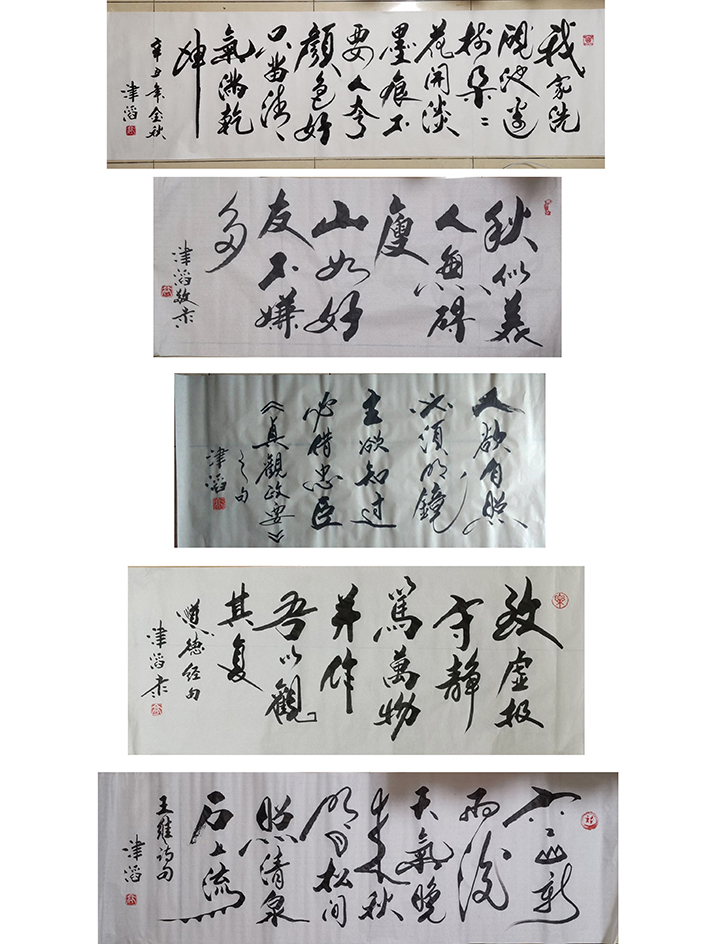 我家洗
砚池边
树朵〻
花開淡
墨痕不
要人夸
顏色好
只留清
氣滿乾
坤
辛丑年金秋
津滔
秋似美
人無碍
瘦
山如好
友不嫌
多
津滔敬录
人欲自照
必须明鏡
主欲知过
必借忠臣
《貞觀政要》
之句
津滔
致虚极
守静
篤萬物
并作
吾以觀
其复
道德经句
津滔录
空山新
雨後
天氣晚
来秋
明月松间
照清泉
石上流
王维诗句
津滔